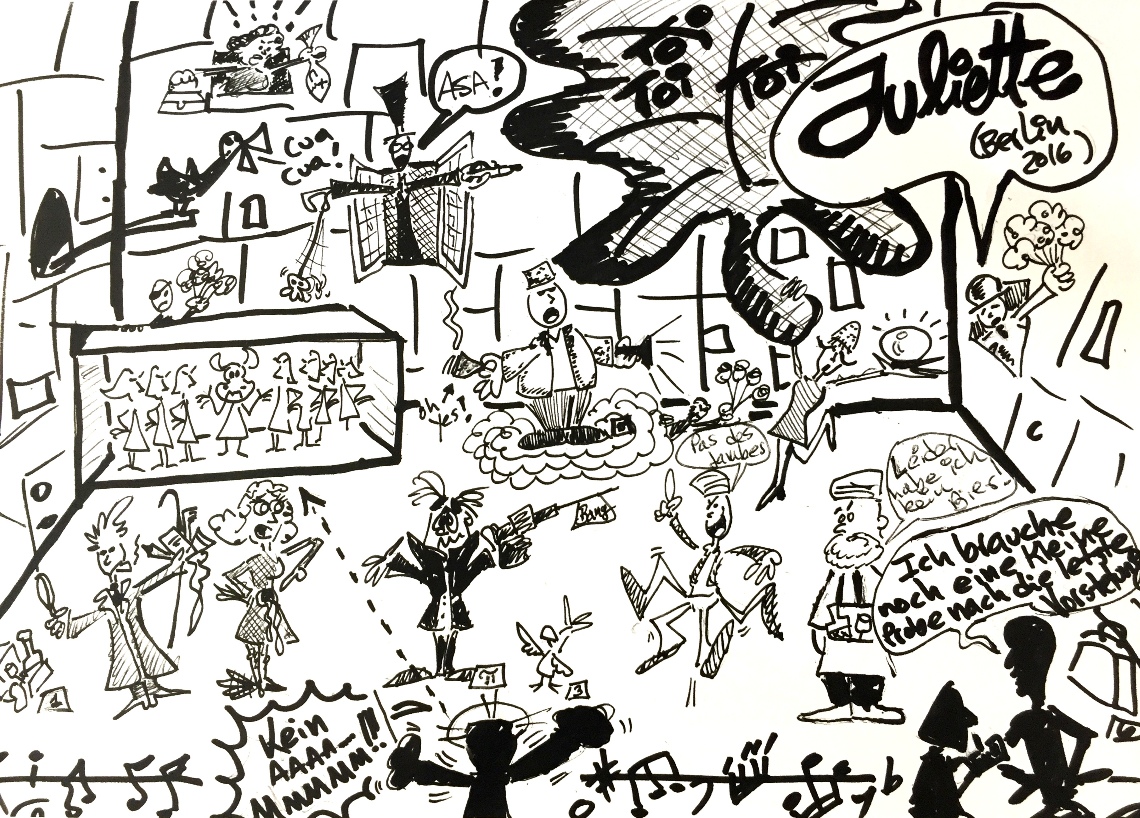 ASA!
Toi
Toi
Toi
Juliette
(Berlin
2016)
cua
cua!
oh
yes!
Pas des
jambes
Bang
Leider
habe ich
kein
Bier..
Ich brauche
noch eine kleine
Probe nach die letzte
Vorstellung
1
3
Kein
AAAA—
MMMMM!!!